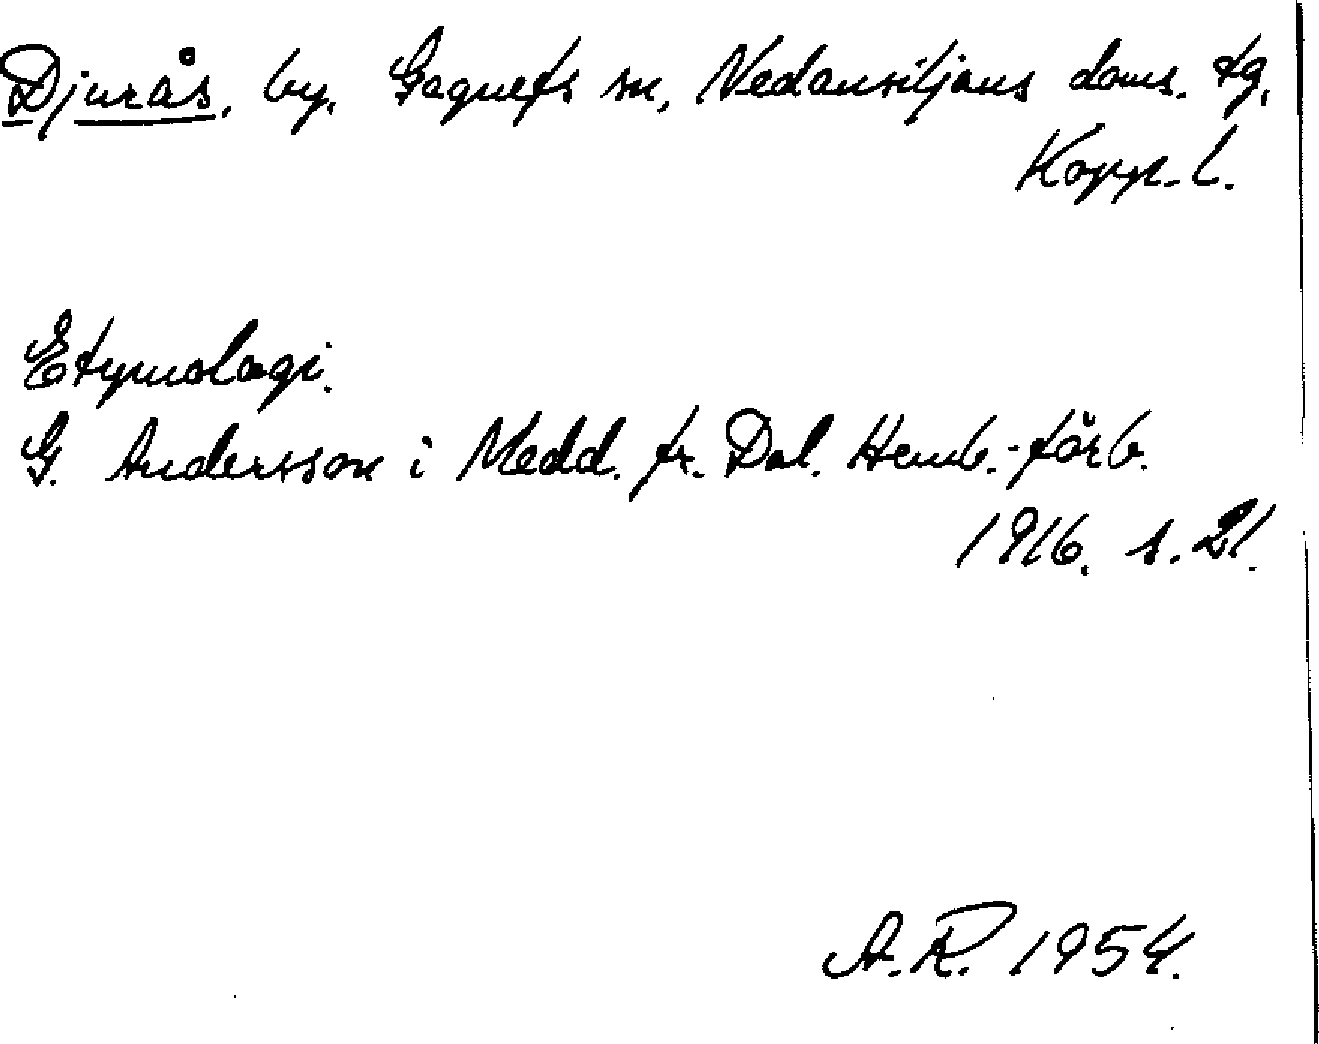 Djurås, by, Gagnefs sn, Nedansiljans doms. tg.
Kopp. l.
Etymologi.
G. Andersson i Medd. fr. Dal. Hemb.-förb.
1916. s. 21.
A.R. 1954.